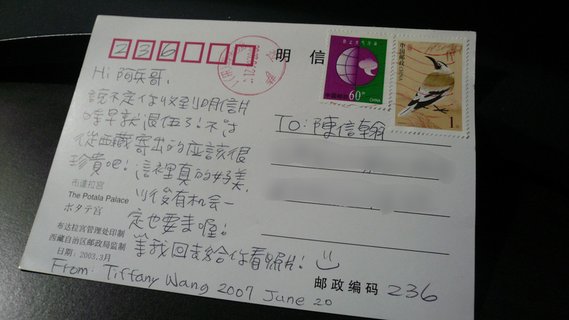 236
明信
中国邮政 60分 CHINA
中国邮政 CHINA
1元
Hi 阿兵哥,
說不定你收到明信片
時早就退伍了!不過
從西藏寄出的應該很
珍貴吧!這裡真的好美,
以後有机会一
定也要來喔!
等我回去給你看照片!
布達拉宮
The Potala Palace
ポタラ宮
布达拉宫管理处印制
西藏自治区邮政局监制
日期:2003.3月
From: Tiffany Wang 2007 June 20
TO: 陳信翰
邮政编码 236